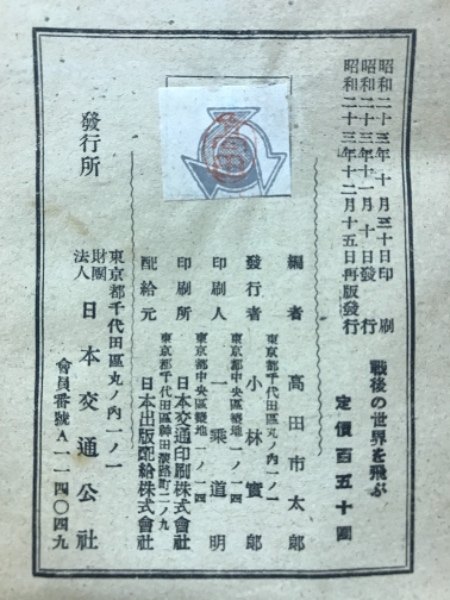 昭和二十三年十月三十日印刷
昭和二十三年十一月十日發行
昭和二十三年十二月十五日再版發行
戰後の世界を飛ぶ
定價百五十圓
編者 高田市太郎
東京都千代田區丸ノ内一ノ一
發行者 小林實
東京都中央區築地一ノ一四
印刷人 一乘道明
東京都中央區築地一ノ一四
印刷所 日本交通印刷株式會社
東京都千代田區神田淡路町二ノ九
配給元 日本出版配給株式會社
發行所
東京都千代田區丸ノ内一ノ一
財團法人 日本交通公社
會員番號A一一四〇四九